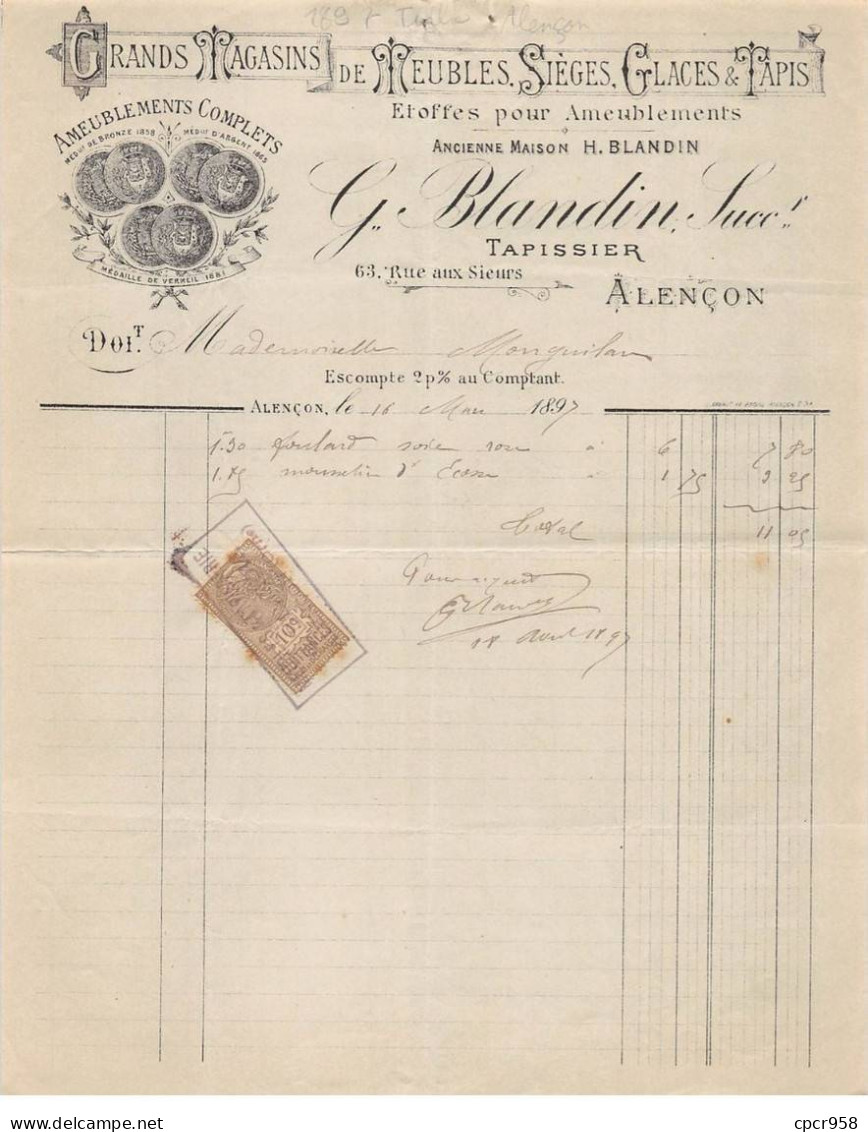 189
Alençon
GRANDS MAGASINS DE MEUBLES, SIÈGES, GLACES & TAPIS
AMEUBLEMENTS COMPLETS
MÉDlle DE BRONZE 1858 MÉDlle D'ARGENT 1865
MÉDAILLE DE VERMEIL 1881
Etoffes pour Ameublements
ANCIENNE MAISON H. BLANDIN
G. Blandin, Succr.
TAPISSIER
63, Rue aux Sieurs
ALENÇON
DOIT. Mademoiselle
Escompte 2p% au Comptant.
ALENÇON, le 16 1897
1.30 foulard soie rose à 6 7 80
1.75 d'Ecosse à 1 75 3 25
Total 11 05
Pour acquit
18 Avril 1897
10c
QUITTANCES
cpcr958